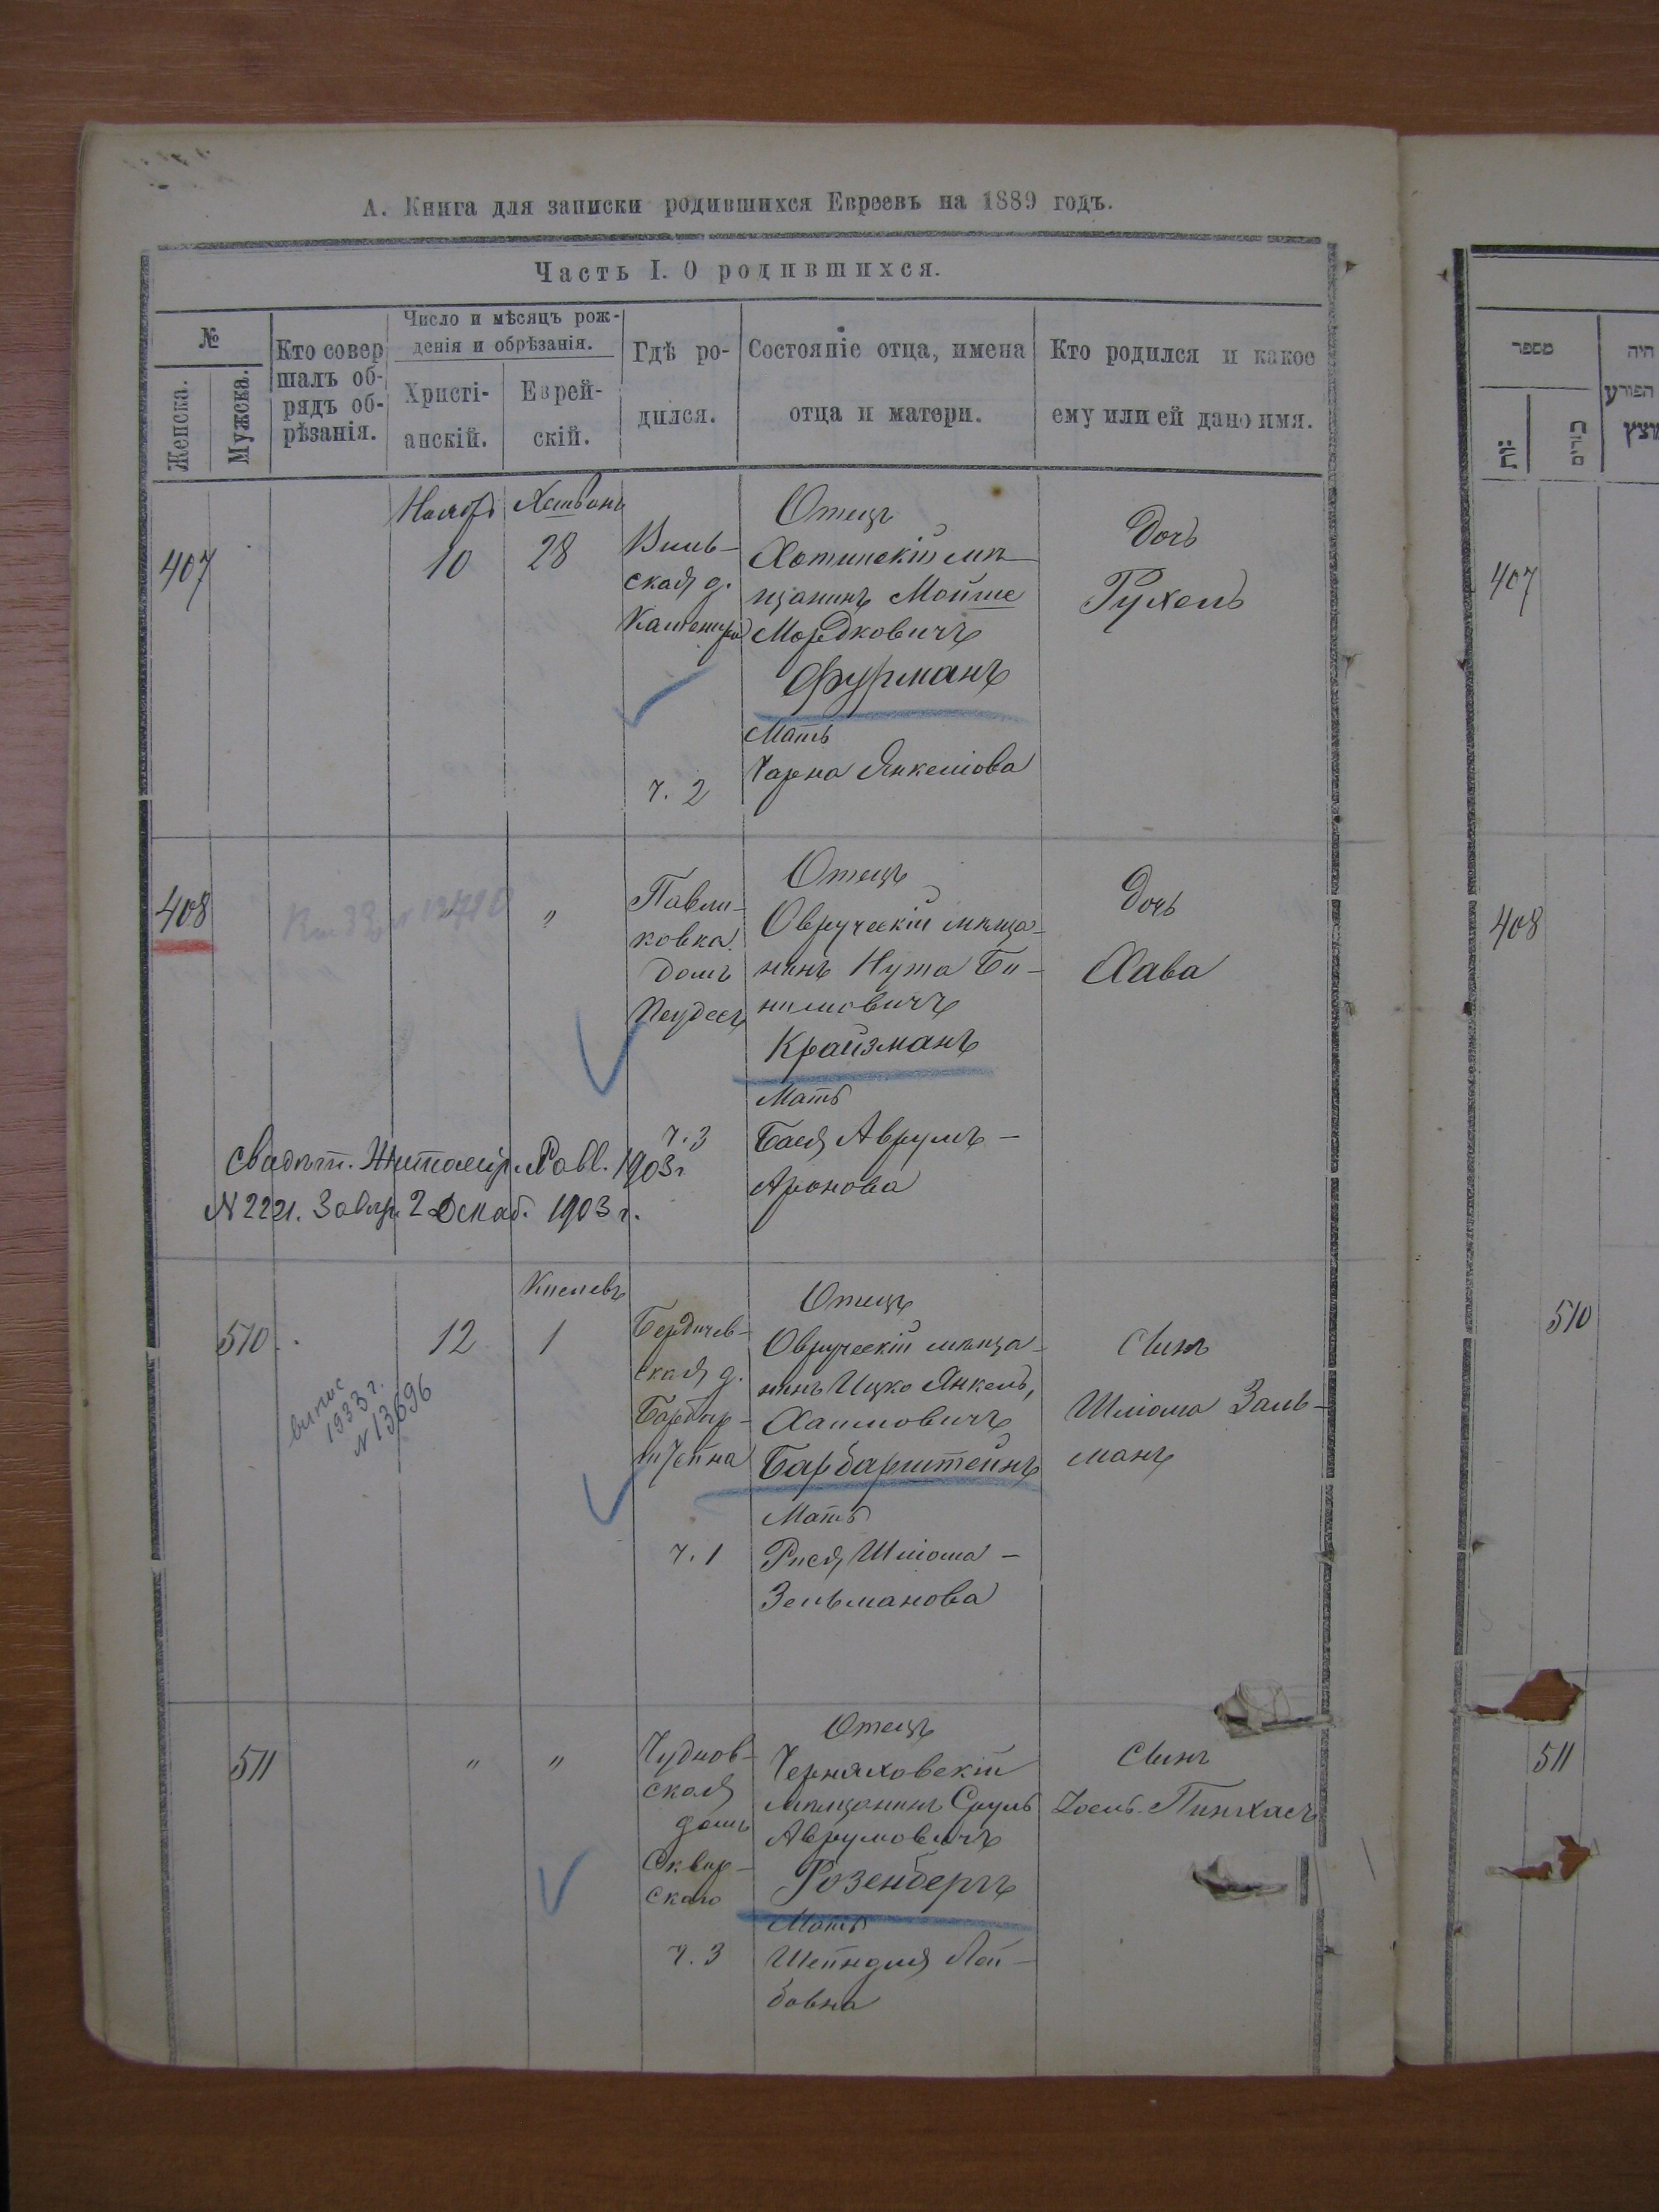 А. Книга для записки родившихся Евреевъ на 1889 годъ.
Часть I. О родившихся.
№
Женска.
Мужска.
Кто совер
шалъ об-
рядъ об-
рѣзанія.
Число и мѣсяцъ рож-
денія и обрѣзанія.
Христі-
анскій.
Еврей-
скій.
Гдѣ ро-
дился.
Состояніе отца, имена
отца и матери.
Кто родился и какое
ему или ей дано имя.
407
10
28
Виль-
ская д.
ч. 2
Отецъ
Хотинскій мѣ-
щанинъ Мойше
Мордковичъ
Фурманъ
Мать
Чарна Янкелiова
Дочь
Рухель
408
"
"
Павли-
ковка
домъ
ч. 3
Отецъ
Овруческій мѣща-
нинъ Нута Би-
нимовичъ
Крайзманъ
Мать
Бася Аврумъ-
Аронова
Дочь
Хава
Свидѣт. Житомір. Равв. 1903 г
N 2221. Завѣр. 2 Декаб. 1903 г.
510
випис
1933 г.
N 13696
12
Кислевъ
1
Бердичев-
ская д.
Барбар-
штейна
ч. 1
Отецъ
Овруческій мѣща-
нинъ Ицко Янкель,
Хаимовичъ
Барбарштейнъ
Мать
Рися Шлiома-
Зельманова
Сынъ
Шлiома Заль-
манъ
511
"
"
Чуднов-
ская
домъ
Сквир-
скаго
ч. 3
Отецъ
Черняховскій
мѣщанинъ Сруль
Аврумовичъ
Розенбергъ
Мать
Шейндля Лей-
бовна
Сынъ
Iосель-Пинхасъ
מספר
היה
הפורע
407
408
510
511